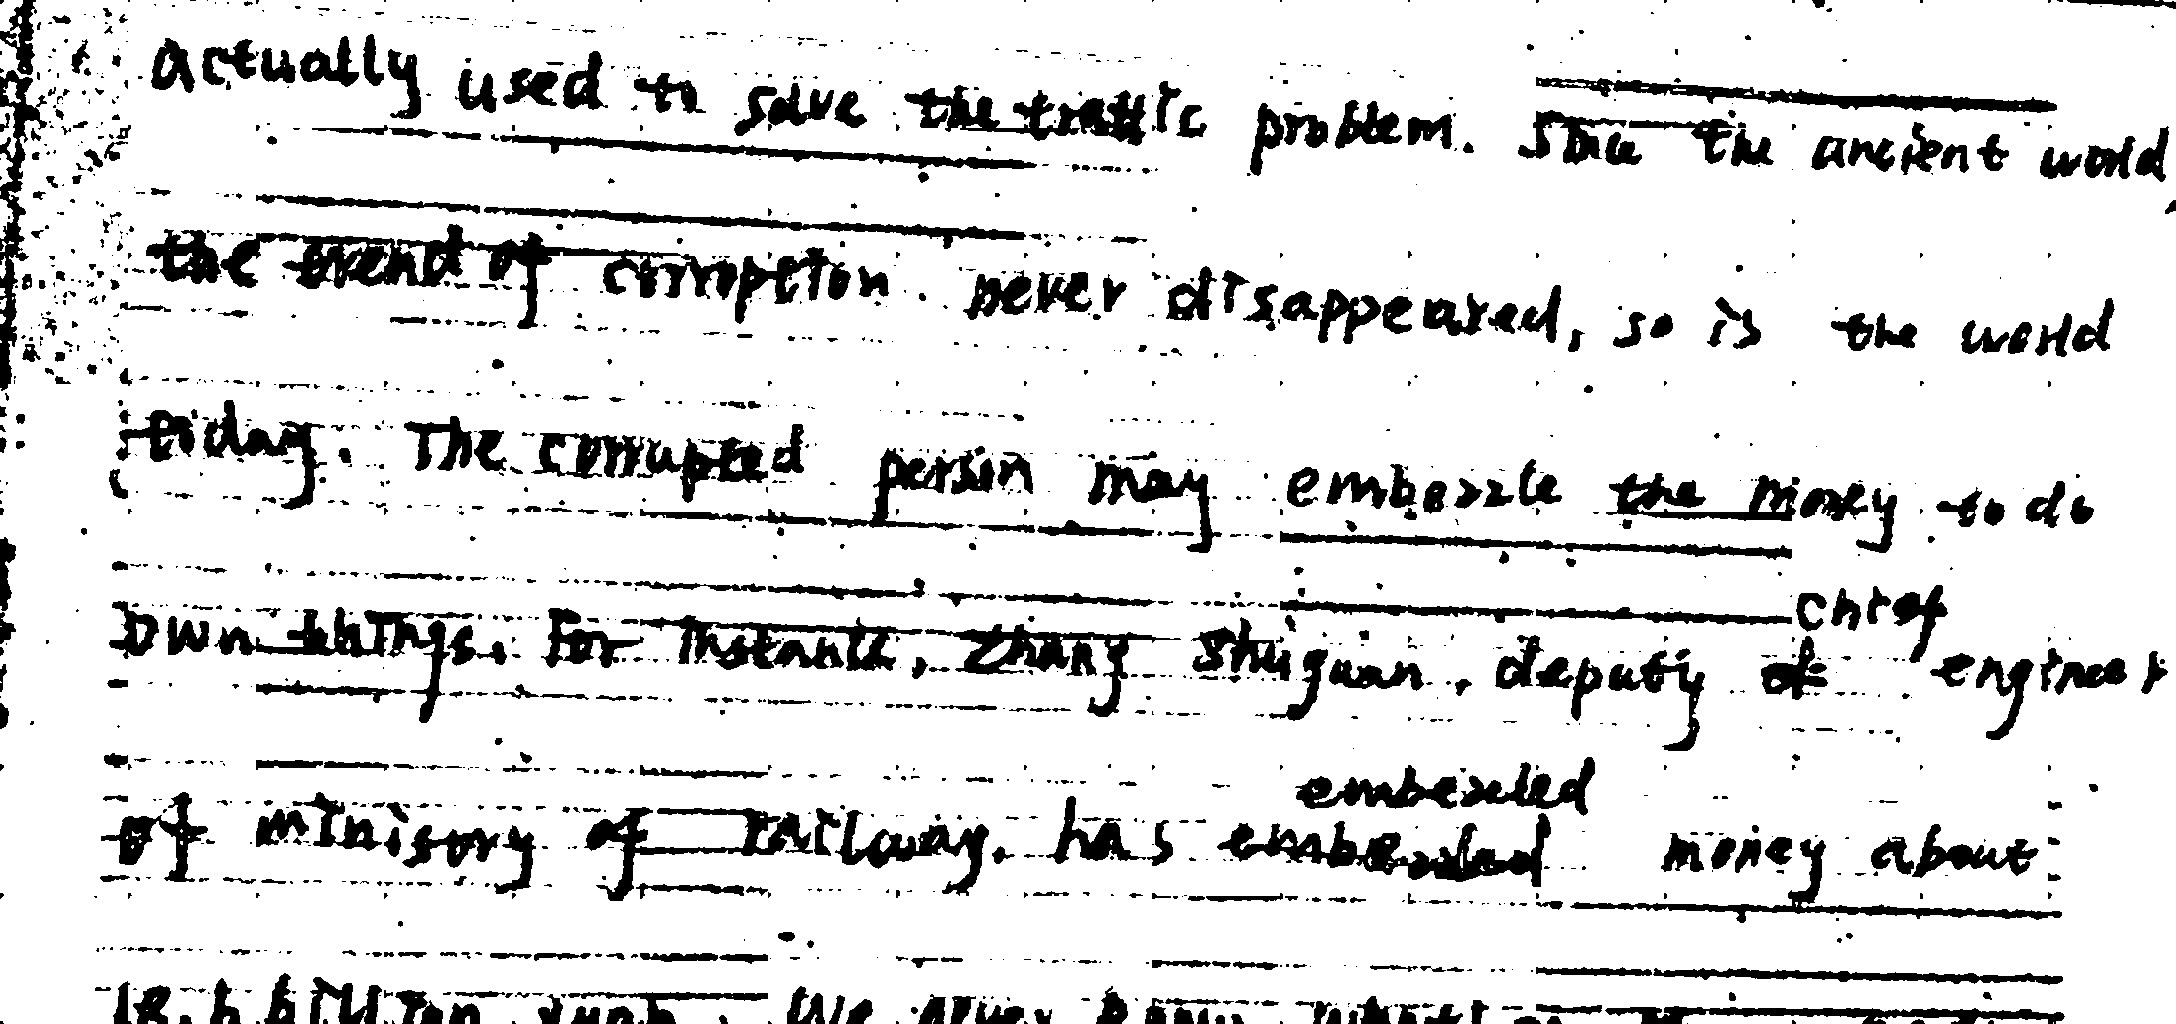 actually used to solve the traffic problem. Since the ancient world,
the trend of corroption never disappeared, so is the world
today. The corrupted person may embezzle the money to do
own things. For instante, Zhang Shuguan, deputy chief engineer
of minisory of railway. has embezzled money about
billion yuan. We never know